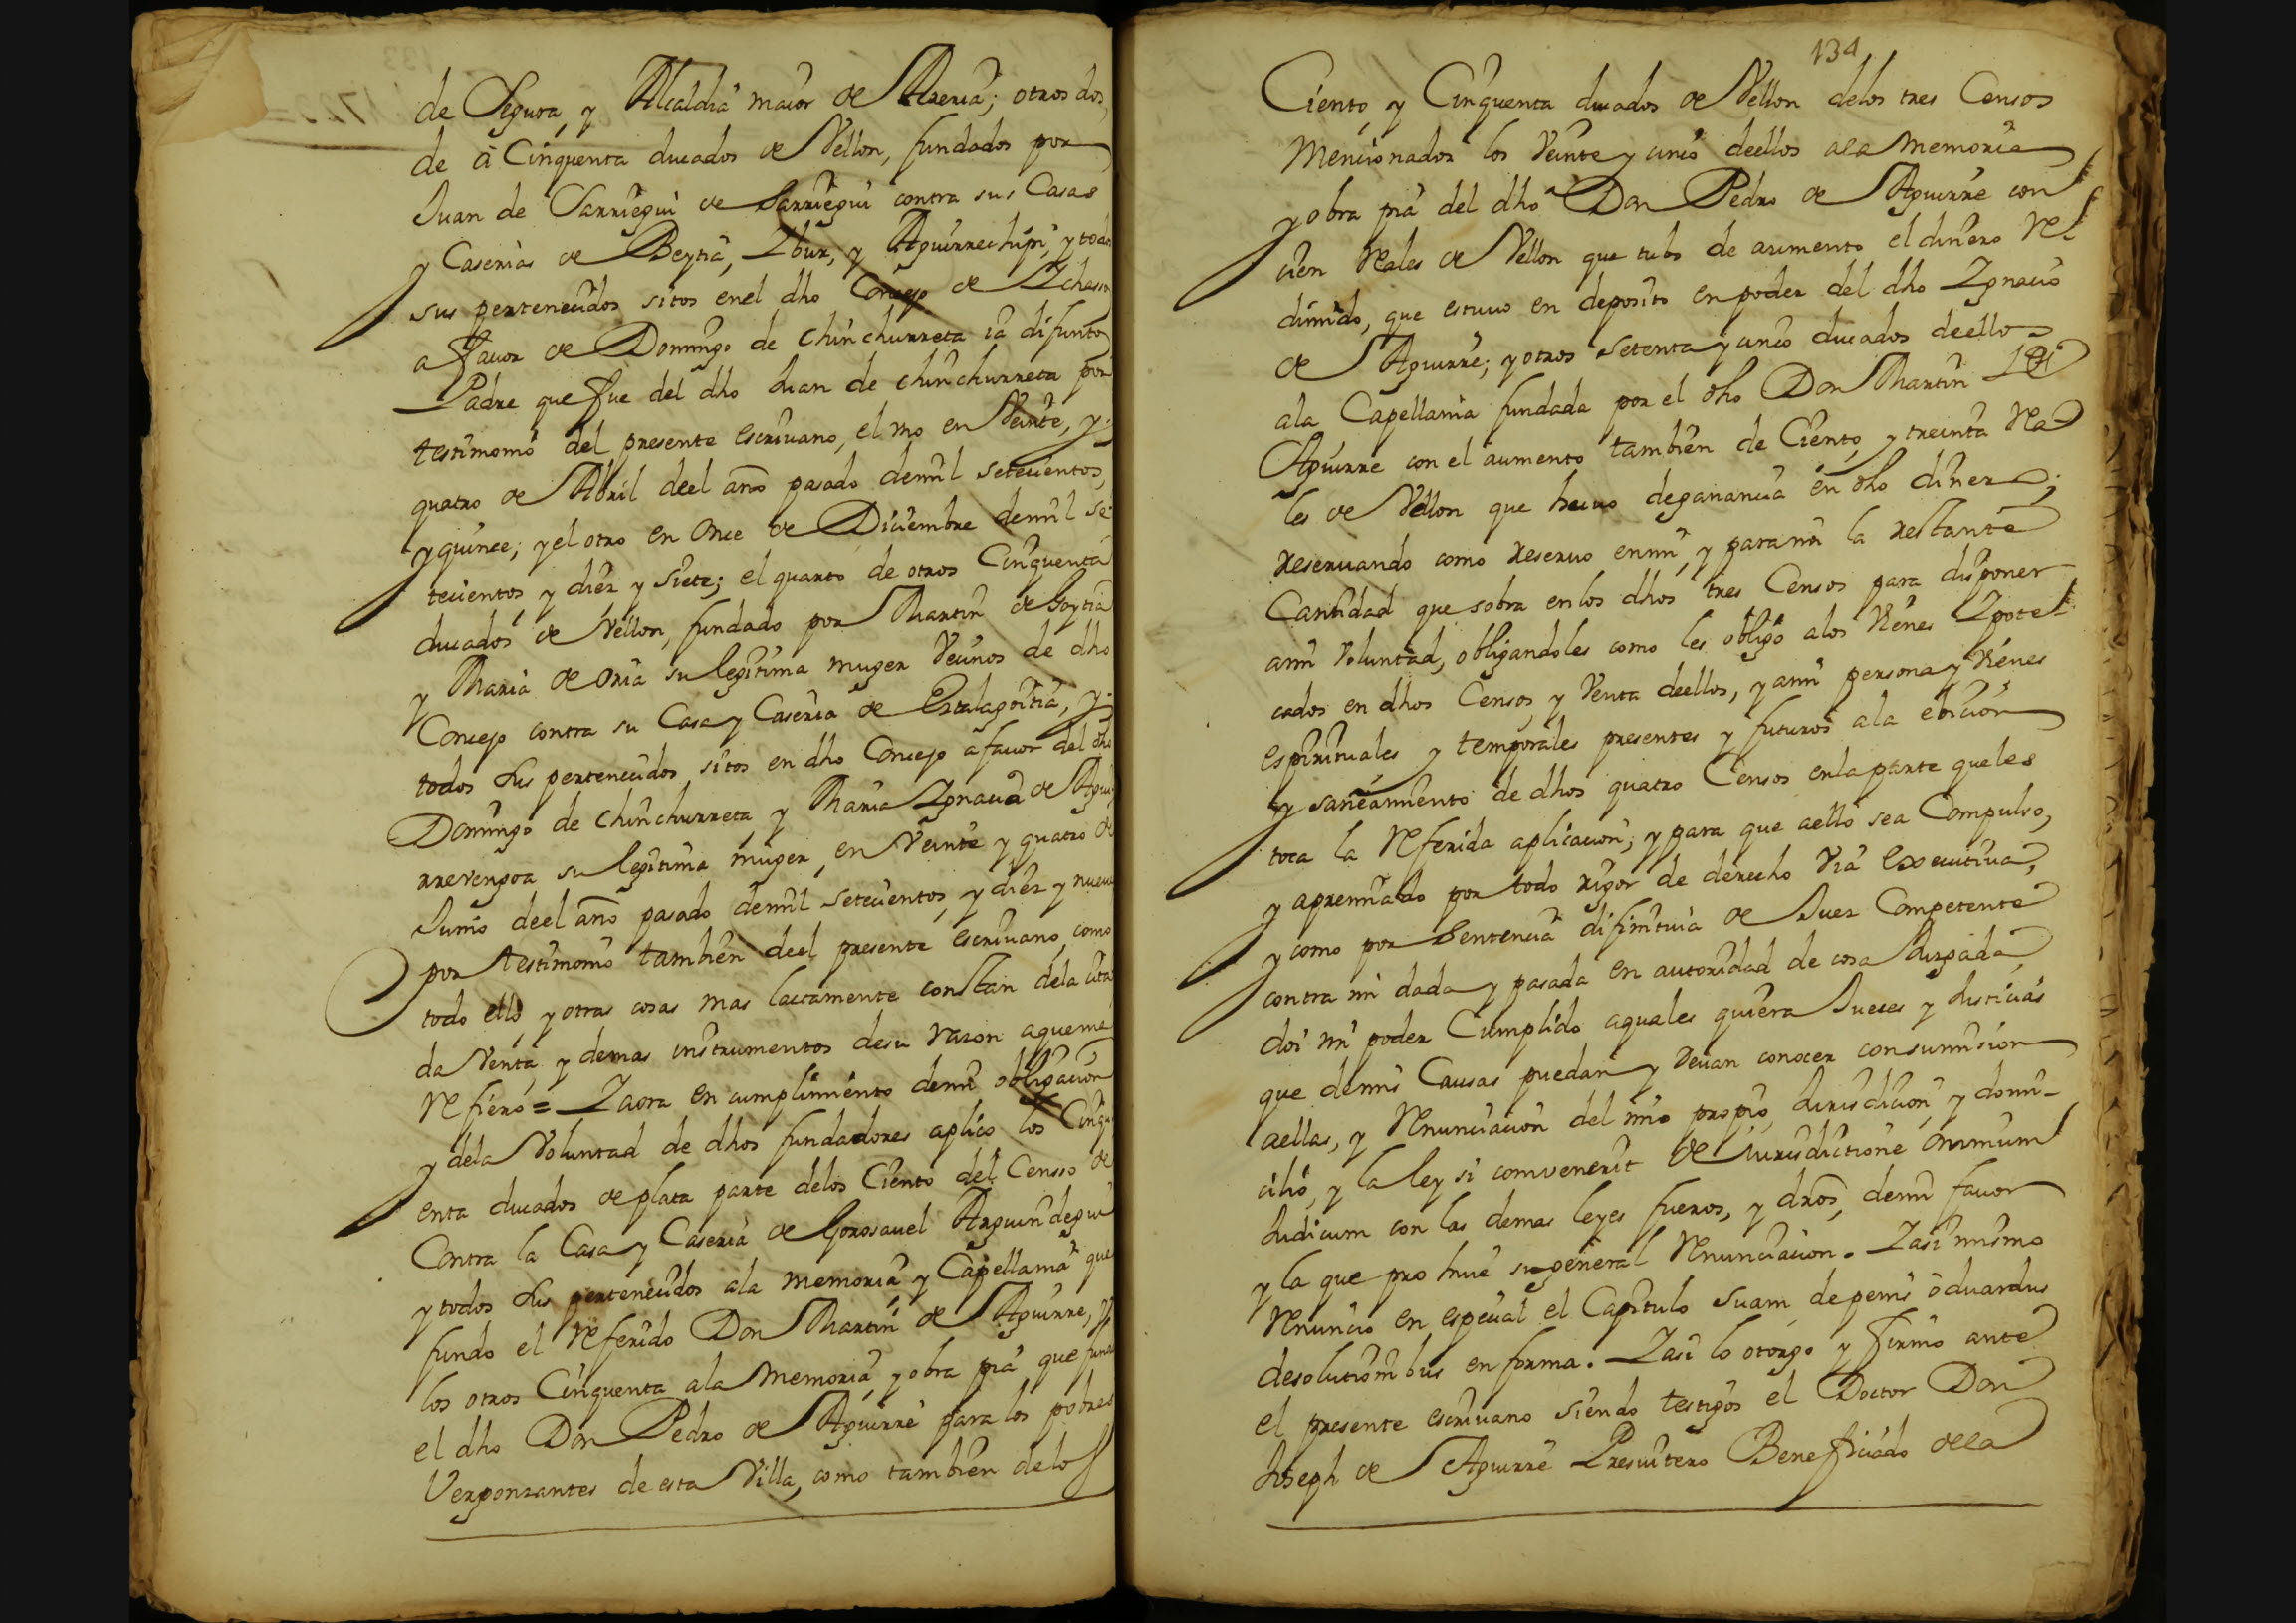 de Segura, y Alcaldia maior de Areria; otros dos,
de à Cinquenta ducados de Vellon, fundados por
Juan de Sarriegui de Sarriegui contra sus Casas
y Caserias de Beytia, Ibur, y Aguirrechipi, y todos
sus pertenecidos sitos enel dho Concejo de Ichaso
a favor de Domingo de Chinchurreta ia difunto
Padre que fue del dho Juan de chinchurreta por
testimonio del presente escrivano, el uno en Veinte, y
quatro de Abril deel año pasado demil setecientos,
y quince; y el otro en Once de Diciembre demil se
tecientos y diez y siete; el quarto de otros Cinquenta
ducados de Vellon, fundado por Martin de Goytia
y Maria de Oria su legitima muger Vecinos de dho
Concejo contra su Casa y Caseria de Estalagoitia, y
todos sus pertenecidos sitos en dho Concejo a favor del dho
Domingo de Chinchurreta, y Maria Ignacia de Agui
rrevengoa su legitima muger, en Veinte y quatro de
Junio deel año pasado demil setecientos, y diez y nueve
por testimonio tambien deel presente escrivano, como
todo ello, y otras cosas mas lactamente constan dela cita
da Venta, y demas instrumentos desu razon aqueme
Refiero = Iaora en cumplimiento demi obligacion
y dela Voluntad de dhos fundadores aplico los Cinqu
enta ducados de plata parte delos Ciento del Censso de
Contra la Casa y Caseria de Gorosavel Arguindegui
y todos sus pertenecidos ala memoria, y Capellania que
fundo el Referido Don Martin de Aguirre, y
los otros Cinquenta ala Memoria, y obra pia que funda
el dho Don Pedro de Aguirre para los pobres
Vergonzantes de esta Villa, como tambien delos
134
Ciento, y Cinquenta ducados de Vellon delos tres Censos
Mencionados los Veinte y cinco deellos ala Memoria
y obra pia del dho Don Pedro de Aguirre con
cien Reales de Vellon que tubo de aumento el dinero Re
dimido, que estuvo en deposito en poder del dho Ignacio
de Aguirre; y otros setenta y cinco ducados deellos
ala Capellania fundada por el dho Don Martin de
Aguirre con el aumento tambien de Ciento, y treinta Rea
les de Vellon que huvo deganancia en dho dinero;
reservando como reservo enmi, y para mi la restante
Cantidad que sobra en los dhos tres Censos para disponer
ami Voluntad, obligandoles como les obligo alos Vienes Ipote
cados en dhos Censos, y Venta deellos, y ami persona y Vienes
espirituales y temporales presentes y futuros ala ebiccion
y saneamiento de dhos quatro Censos enla parte que les
toca la Referida aplicacion; y para que aello sea Compulso,
y apremiado por todo rigor de derecho Via executiva,
y como por Sentencia difinitiva de Juez Competente
contra mi dada y pasada en autoridad de cosa Juzgada
doi mi poder Cumplido aquales quiera Jueces y Justicias
que demis Causas puedan y devan conocer consumision
aellas, y Renunciacion del mio propio, Jurisdicion, y domi-
cilio, y la ley si convenerit de Jurisdictione omnium
Judicum con las demas leyes fueros, y dros, demi favor
y la que prohive su general Renunciacion. Iasi mismo
Renuncio en especial el Capitulo suam depenis òduardus
desolutionibus en forma. Iasi lo otorgo y firmo ante
el presente escrivano siendo testigos el Doctor Don
Joseph de Aguirre Presvitero Beneficiado dela